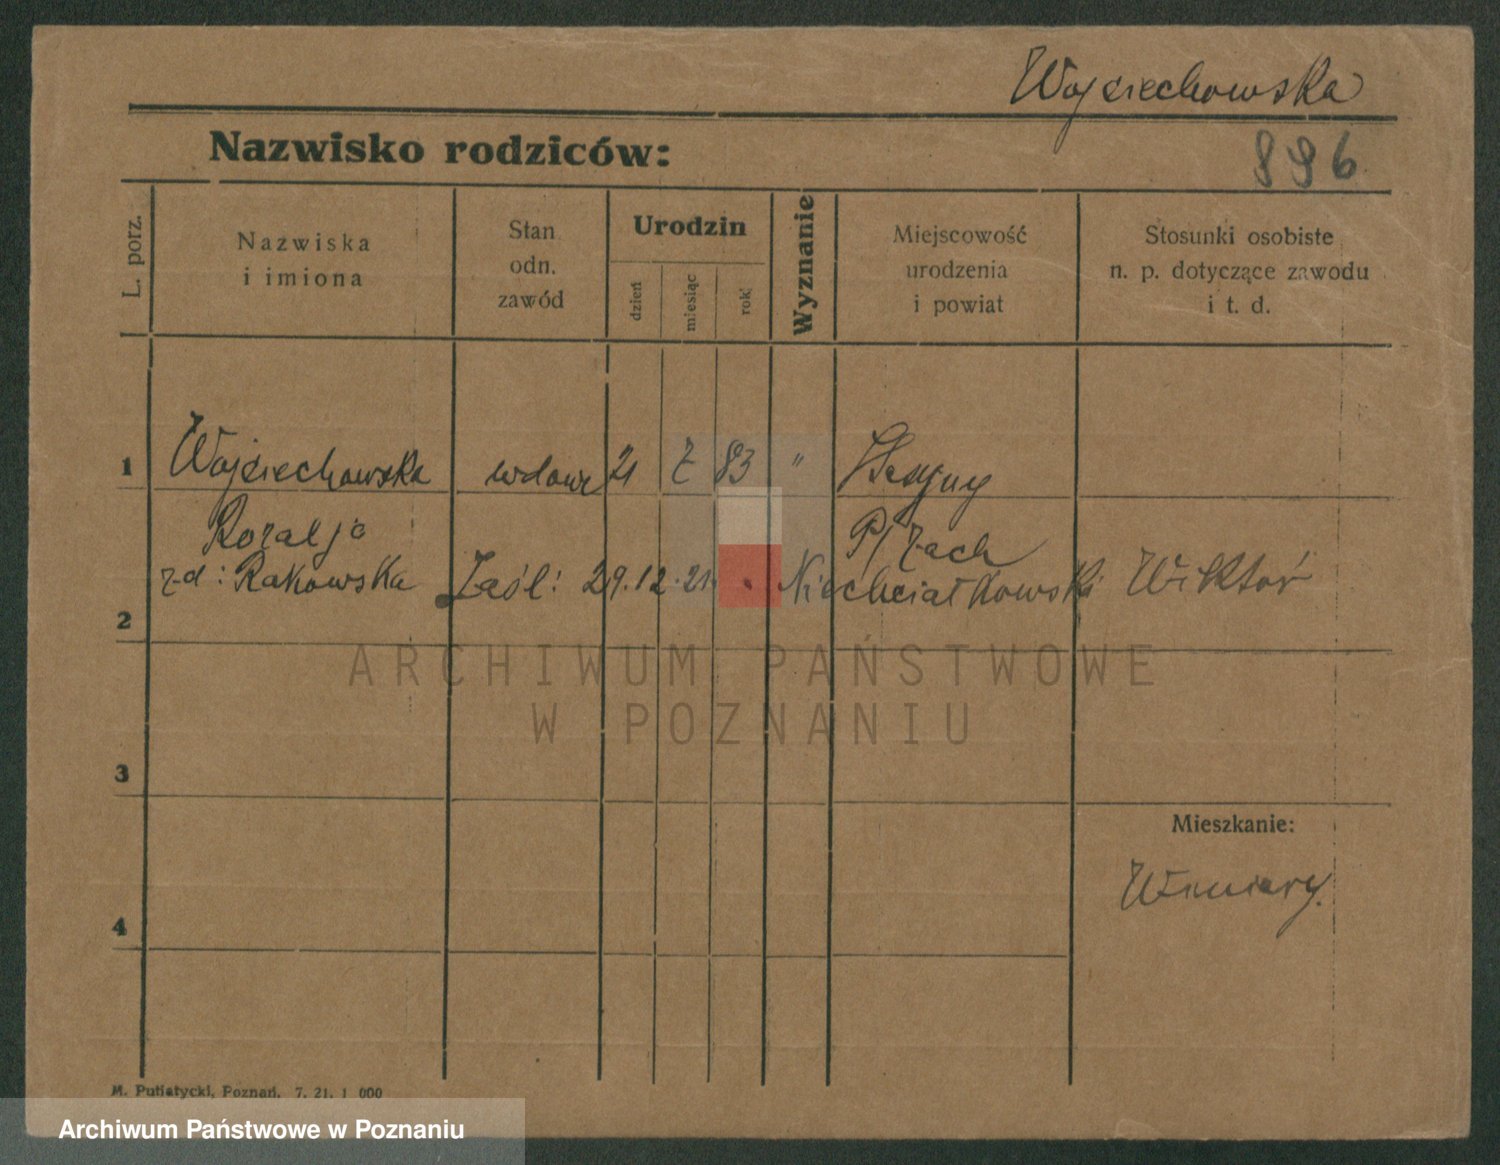 Wojciechowska
Nazwisko rodziców:
896
L. porz.
Nazwiska
i imiona
Stan
odn.
zawód
Urodzin
dzień
miesiąc
rok
Wyznanie
Miejscowość
urodzenia
i powiat
Stosunki osobiste
n. p. dotyczące zawodu
i t. d.
1
Wojciechowska wdowa 21 7 83 "
Rozalja
z d: Rakowska Zaśl: 29.12.21. Niechciałkowski Wiktor
2
ARCHIWUM PAŃSTWOWE
W POZNANIU
3
Mieszkanie:
Winiary.
4
M. Putiatycki, Poznań, 7. 21. 1 000
Archiwum Państwowe w Poznaniu